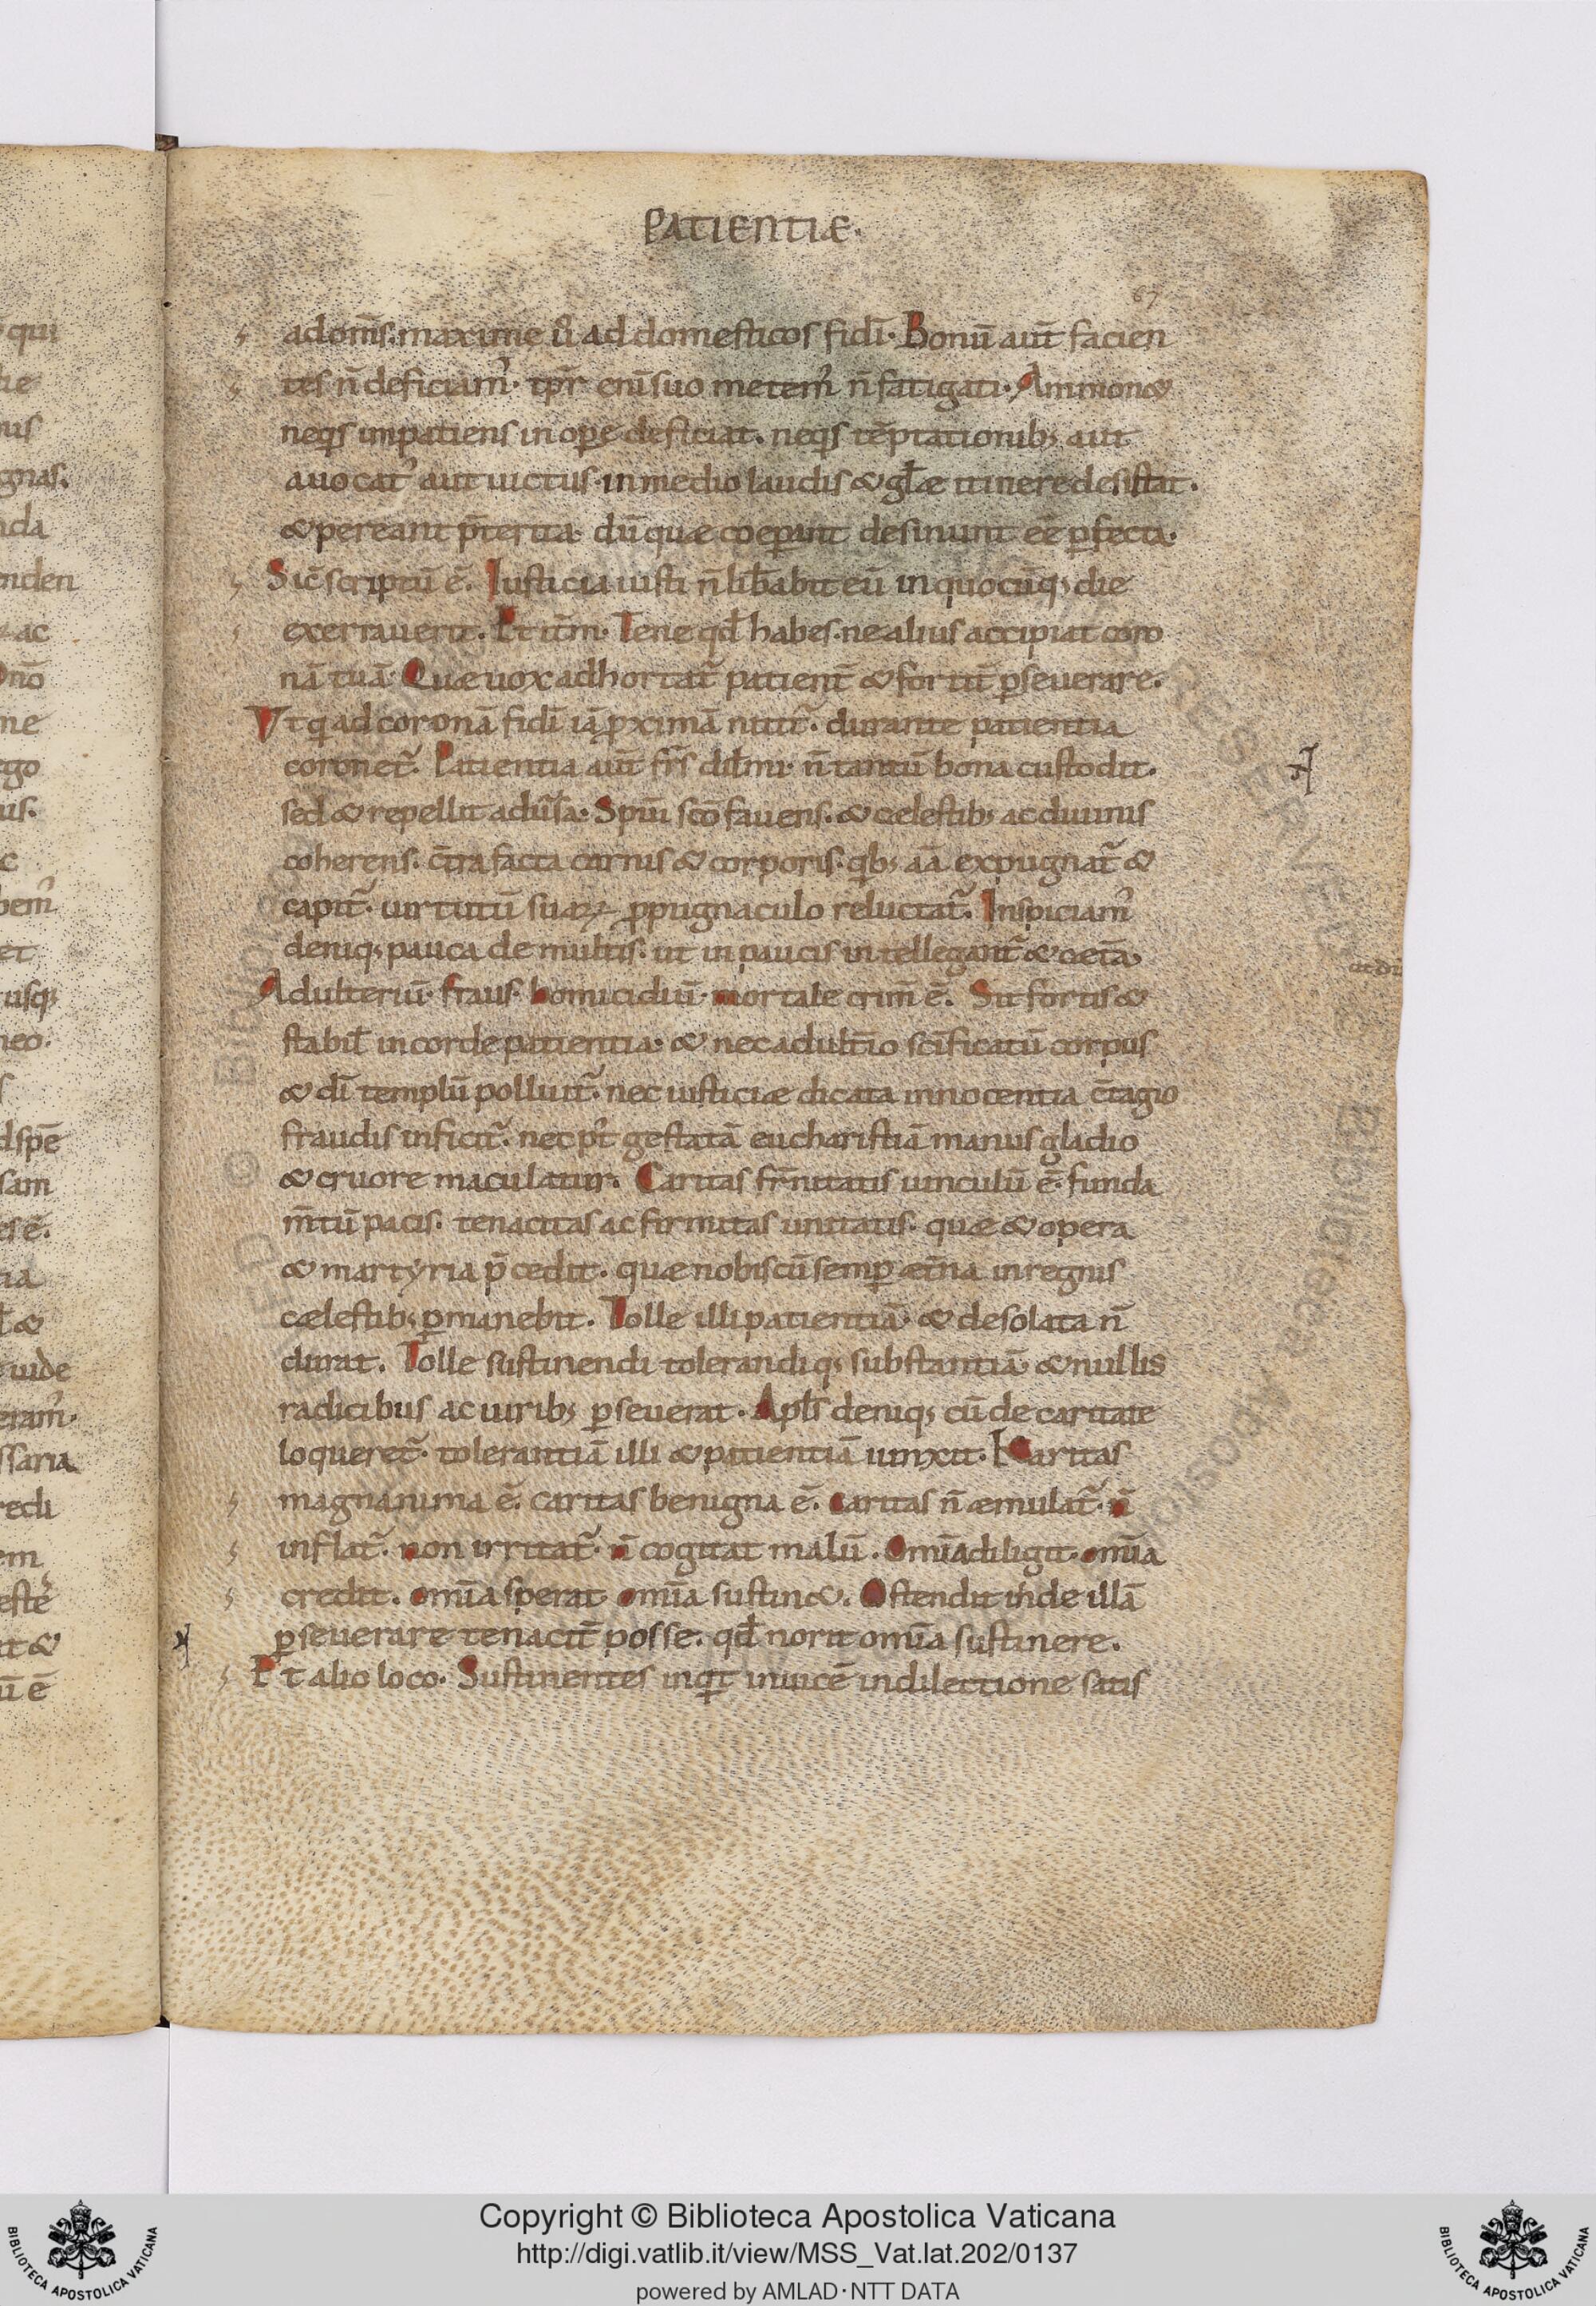 PATIENTIÆ.
67
ad om̄s. maxime ū ad domesticos fidī. Bonū aut̄ facien
tes n̄ deficiam᾽. tp̄r enī suo metem᾽ n̄ fatigati. Ammon&
neq;s impatiens in ope deficiat. neq;s tēptationib; aut
auocat᾽ aut uictus. in medio laudis & gl̄æ itinere desistat.
& pereant p̄terita. dū quæ coeperant desinunt eē pfecta.
Sic̄ scriptū ē. Iusticia iusti n̄ lib̄abit eū in quocūq; die
exerrauerit. Et it̄m. Tene qd̄ habes. ne alius accipiat coro
nā tuā. Quæ uox adhortat᾽ patient̄ & fortit̄ pseuerare.
Vt q ad coronā fidī iā pximā nitit᾽. durante patientia
coronet᾽. Patientia aut̄ fr̄s dil̄mi. n̄ tantū bona custodit.
sed & repellit aduīsa. Spūi scō fauens. & cælestib; ac diuinis
coherens. c̄tra facta carnis & corporis. qb; aā expugnat᾽ &
capit᾽. uirtutū suaꝝ ppugnaculo reluctat᾽. Inspiciam᾽
deniq; pauca de multis. ut in paucis intellegant᾽ & cæt̄a.
Adulteriū. fraus. homicidiū. mortale crim̄ ē. Sit fortis &
stabil̄ in corde patientia. & nec adult̄io sc̄ificatū corpus
& dī templū polluit᾽. nec iusticiæ dicata innocentia c̄tagio
fraudis inficit᾽. nec p᾽t gestatā eucharistiā manus gladio
& cruore maculatur. Caritas fr̄nitatis uinculū ē. funda
m̄tū pacis. tenacitas ac firmitas unitatis. quæ & opera
& martyria p̄cedit. quæ nobiscū semp æt̄na in regnis
cælestib; pmanebit. Tolle illi patientiā. & desolata n̄
durat. Tolle sustinendi tolerandiq; substantiā. & nullis
radicibus ac uirib; pseuerat. Apl̄s deniq; cū de caritate
loqueret᾽. tolerantiā illi & patientiā iunxit. Karitas
magnanima ē. caritas benigna ē. caritas n̄ æmulat᾽. n̄
inflat᾽. non irritat᾽. n̄ cogitat malū. Omīa diligit. omīa
credit. omīa sperat. omīa sustin&. Ostendit inde illā
pseuerare tenacit̄ posse. qd̄ norit omīa sustinere.
Et alio loco. Sustinentes inqt inuicē in dilectione satis
Copyright © Biblioteca Apostolica Vaticana
http://digi.vatlib.it/view/MSS_Vat.lat.202/0137
powered by AMLAD·NTT DATA
BIBLIOTECA APOSTOLICA VATICANA
BIBLIOTECA APOSTOLICA VATICANA